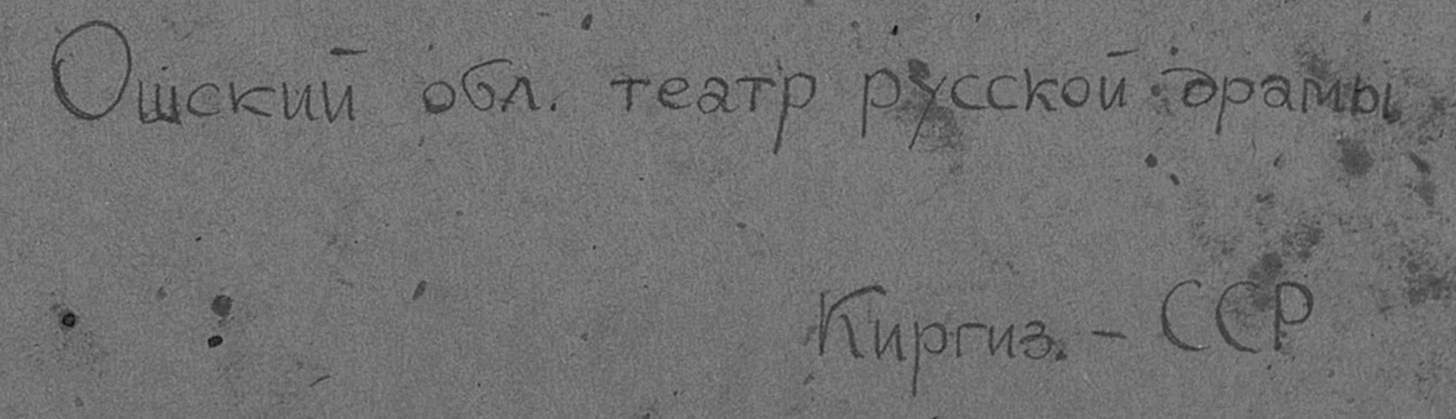 Ошский обл. театр русской драмы
Киргиз. - ССР